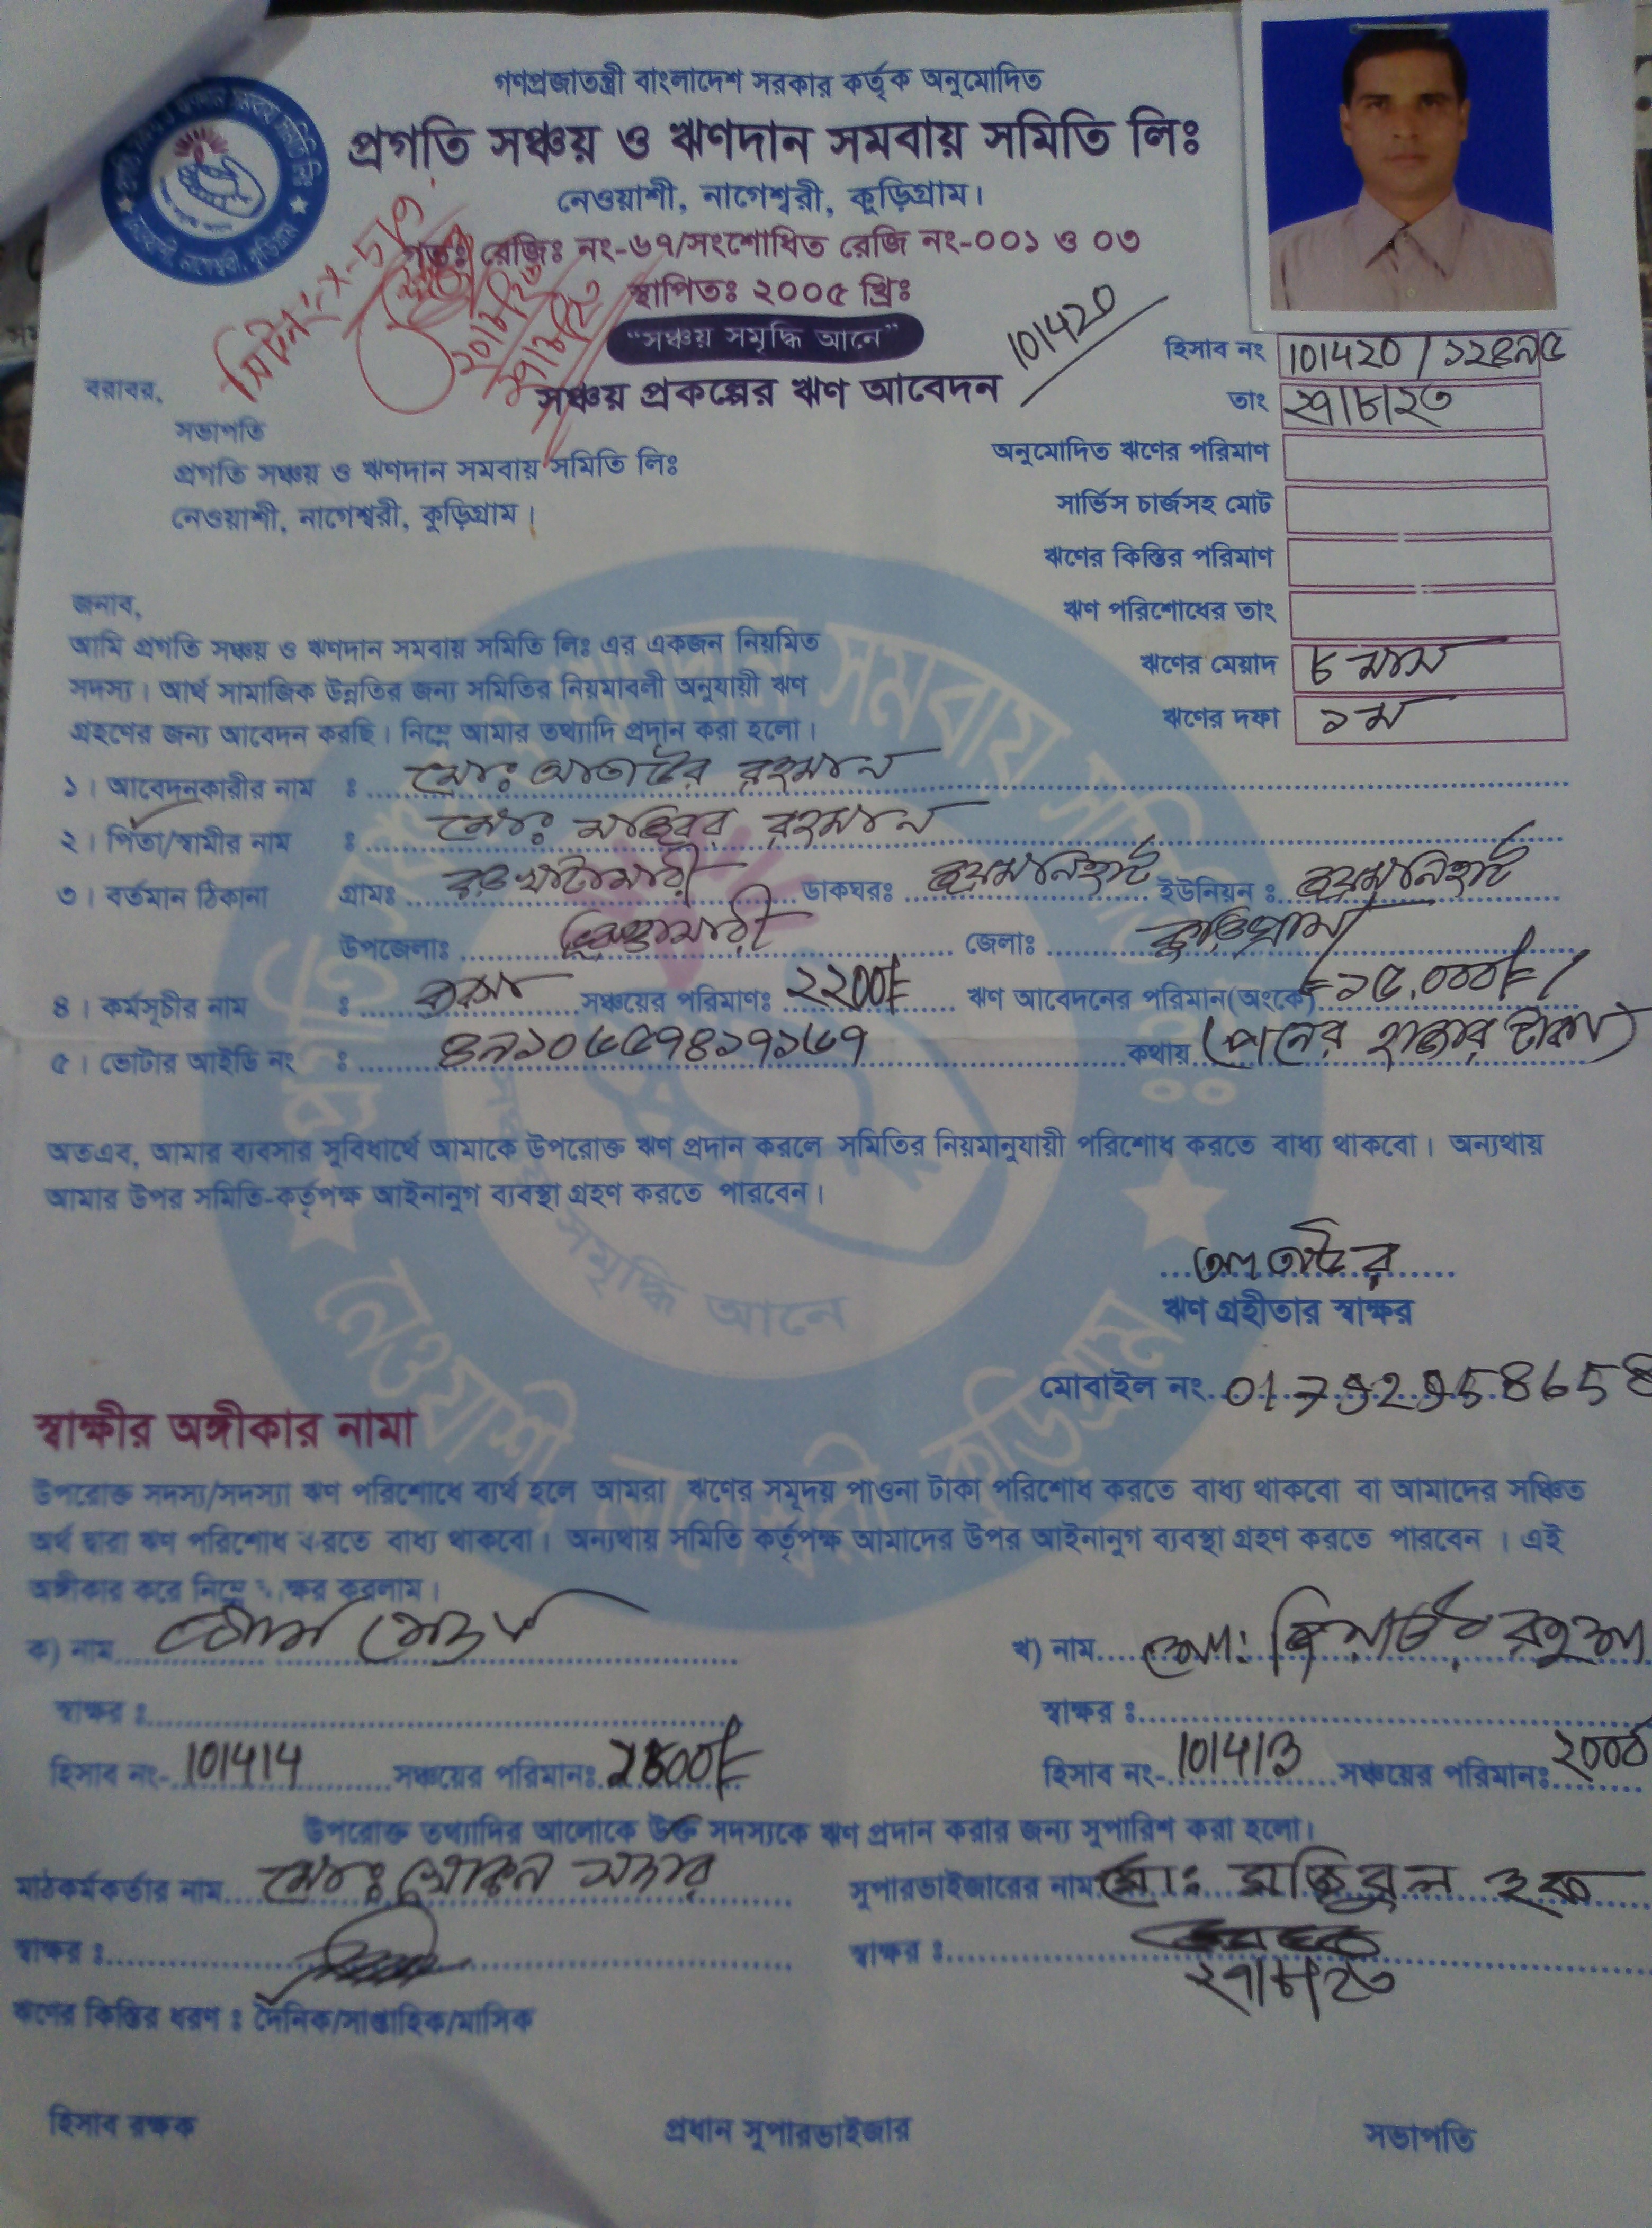 গণপ্রজাতন্ত্রী বাংলাদেশ সরকার কর্তৃক অনুমোদিত
প্রগতি সঞ্চয় ও ঋণদান সমবায় সমিতি লিঃ
নেওয়াশী, নাগেশ্বরী, কুড়িগ্রাম।
গভঃ রেজিঃ নং-৬৭/সংশোধিত রেজি নং-০০১ ও ০৩
স্থাপিতঃ ২০০৫ খ্রিঃ
“সঞ্চয় সমৃদ্ধি আনে”
101420
সঞ্চয় প্রকল্পের ঋণ আবেদন
হিসাব নং 101420 /
তাং ২৭/৮/২৩
অনুমোদিত ঋণের পরিমাণ
সার্ভিস চার্জসহ মোট
ঋণের কিস্তির পরিমাণ
ঋণ পরিশোধের তাং
ঋণের মেয়াদ ৮ মাস
ঋণের দফা ১ম
বরাবর,
সভাপতি
প্রগতি সঞ্চয় ও ঋণদান সমবায় সমিতি লিঃ
নেওয়াশী, নাগেশ্বরী, কুড়িগ্রাম।
জনাব,
আমি প্রগতি সঞ্চয় ও ঋণদান সমবায় সমিতি লিঃ এর একজন নিয়মিত
সদস্য। আর্থ সামাজিক উন্নতির জন্য সমিতির নিয়মাবলী অনুযায়ী ঋণ
গ্রহণের জন্য আবেদন করছি। নিম্নে আমার তথ্যাদি প্রদান করা হলো।
১। আবেদনকারীর নাম : মোঃ আতাউর রহমান
২। পিতা/স্বামীর নাম : মোঃ মজিবর রহমান
৩। বর্তমান ঠিকানা গ্রামঃ ডাকঘরঃ জয়মনিরহাট ইউনিয়ন : জয়মনিরহাট
উপজেলাঃ ভুরুঙ্গামারী জেলাঃ কুড়িগ্রাম
৪। কর্মসূচীর নাম : সঞ্চয়ের পরিমাণঃ ২২00/= ঋণ আবেদনের পরিমান(অংকে) =১৫,০০০/=
৫। ভোটার আইডি নং : কথায় (পনের হাজার টাকা)
অতএব, আমার ব্যবসার সুবিধার্থে আমাকে উপরোক্ত ঋণ প্রদান করলে সমিতির নিয়মানুযায়ী পরিশোধ করতে বাধ্য থাকবো। অন্যথায়
আমার উপর সমিতি-কর্তৃপক্ষ আইনানুগ ব্যবস্থা গ্রহণ করতে পারবেন।
আতাউর
ঋণ গ্রহীতার স্বাক্ষর
মোবাইল নং
স্বাক্ষীর অঙ্গীকার নামা
উপরোক্ত সদস্য/সদস্যা ঋণ পরিশোধে ব্যর্থ হলে আমরা ঋণের সমূদয় পাওনা টাকা পরিশোধ করতে বাধ্য থাকবো বা আমাদের সঞ্চিত
অর্থ দ্বারা ঋণ পরিশোধ করতে বাধ্য থাকবো। অন্যথায় সমিতি কর্তৃপক্ষ আমাদের উপর আইনানুগ ব্যবস্থা গ্রহণ করতে পারবেন। এই
অঙ্গীকার করে নিম্নে স্বাক্ষর করলাম।
ক) নাম খ) নাম মোঃ
স্বাক্ষর : স্বাক্ষর :
হিসাব নং- 101414 সঞ্চয়ের পরিমানঃ হিসাব নং- 101413 সঞ্চয়ের পরিমানঃ ২০০০
উপরোক্ত তথ্যাদির আলোকে উক্ত সদস্যকে ঋণ প্রদান করার জন্য সুপারিশ করা হলো।
মাঠকর্মকর্তার নাম মোঃ খোকন সুপারভাইজারের নাম মোঃ মজিবুল হক
স্বাক্ষর : স্বাক্ষর :
২৭/৮/২৩
ঋণের কিস্তির ধরণ : দৈনিক/সাপ্তাহিক/মাসিক
হিসাব রক্ষক প্রধান সুপারভাইজার সভাপতি